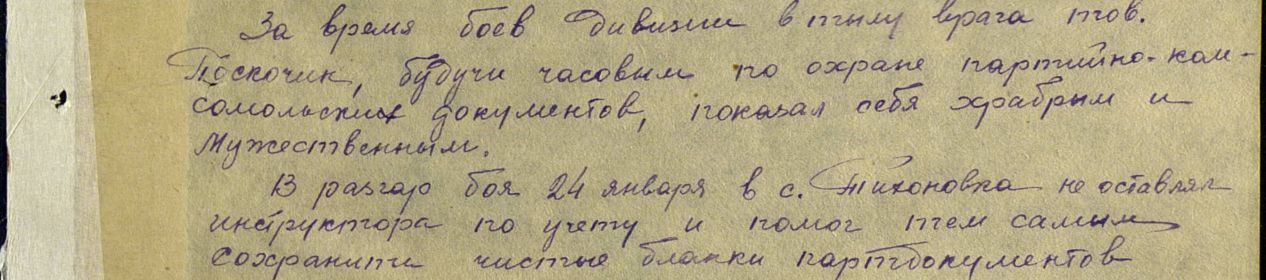 За время боев дивизии в тылу врага тов.
Поскочик, будучи часовым по охране партийно-ком-
сомольских документов, показал себя храбрым и
мужественным.
В разгар боя 24 января в с. Тихоновка не оставлял
инструктора по учету и помог тем самым
сохранить чистые бланки партдокументов